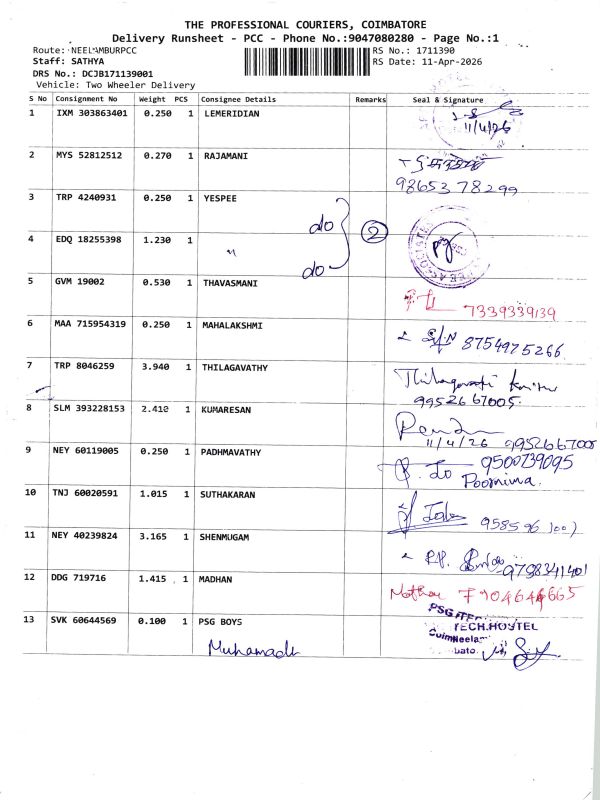 THE PROFESSIONAL COURIERS, COIMBATORE
Delivery Runsheet - PCC - Phone No.:9047080280 - Page No.:1
Route: NEELAMBURPCC RS No.: 1711390
Staff: SATHYA RS Date: 11-Apr-2026
DRS No.: DCJB171139001
Vehicle: Two Wheeler Delivery
S No Consignment No Weight PCS Consignee Details Remarks Seal & Signature
1 IXM 303863401 0.250 1 LEMERIDIAN
11/4/26
2 MYS 52812512 0.270 1 RAJAMANI
9865378299
3 TRP 4240931 0.250 1 YESPEE
do
2
4 EDQ 18255398 1.230 1 "
do
5 GVM 19002 0.530 1 THAVASMANI
7339339139
6 MAA 715954319 0.250 1 MAHALAKSHMI
8754975266
7 TRP 8046259 3.940 1 THILAGAVATHY
Thilagavati
9952667005
8 SLM 393228153 2.410 1 KUMARESAN
11/4/26 9952667005
9 NEY 60119005 0.250 1 PADHMAVATHY
9500739095
Poornima.
10 TNJ 60020591 1.015 1 SUTHAKARAN
11 NEY 40239824 3.165 1 SHENMUGAM
9798341401
12 DDG 719716 1.415 1 MADHAN
13 SVK 60644569 0.100 1 PSG BOYS
TECH.HOSTEL
Muhamadh